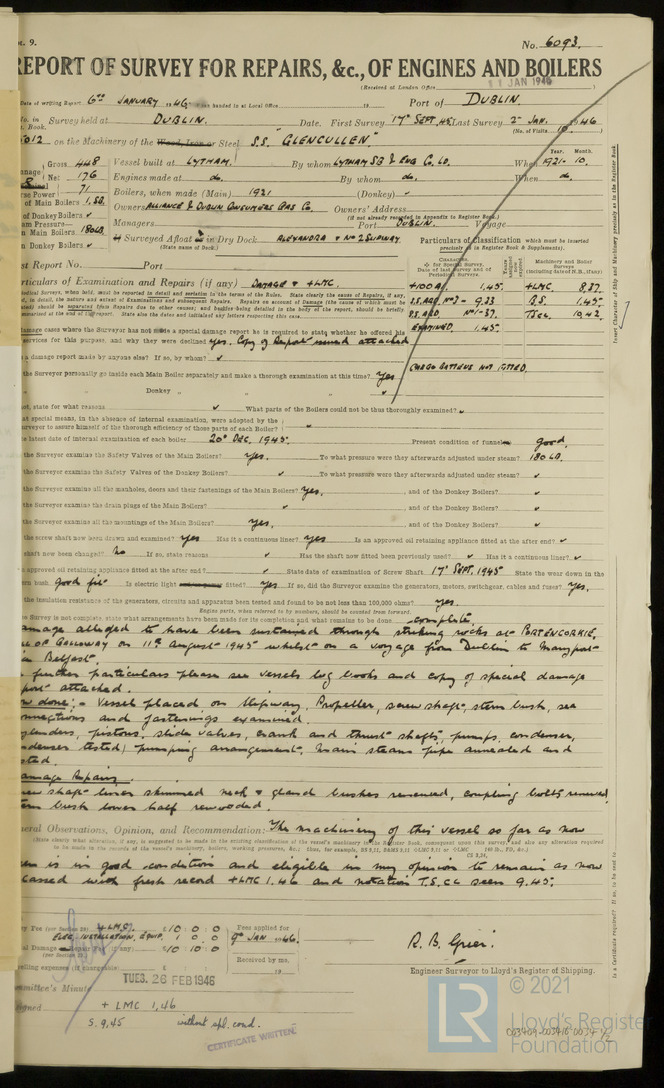 t. 9.
No. 6093.
REPORT OF SURVEY FOR REPAIRS, &c., OF ENGINES AND BOILERS
11 JAN 1946
(Received at London Office
Date of writing Report 6th JANUARY 1946 When handed in at Local Office 19 Port of DUBLIN.
No. in Survey held at DUBLIN. Date. First Survey 17th SEPT, 45 Last Survey 2nd JAN. 1946
Book. (No. of Visits 10.)
on the Machinery of the Wood, Iron or Steel S.S. "GLENCULLEN"
Gross 448 Vessel built at LYTHAM. By whom LYTHAM SB & ENG Co. LD. When 1921-10.
Year. Month.
Net 176 Engines made at do. By whom do. When do.
Power 71 Boilers, when made (Main) 1921 (Donkey) ✓
of Main Boilers 1, SB. Owners ALLIANCE & DUBLIN CONSUMERS GAS Co. Owners' Address
(if not already recorded in Appendix to Register Book.)
of Donkey Boilers ✓ Managers Port DUBLIN. Voyage
am Pressure—
n Main Boilers 180LB. If Surveyed Afloat or in Dry Dock ALEXANDRA & No 2 SLIPWAY
(State name of Dock.)
n Donkey Boilers ✓
Particulars of Classification which must be inserted
precisely as in Register Book & Supplements).
Machinery and Boiler Surveys
(including date of N.B., if any)
st Report No. Port
articulars of Examination and Repairs (if any) DAMAGE & +LMC.
+100 A1. 1,45. +LMC. 8,37.
S.S. No 3 - 9,33 B.S. 1,45.
No 1-37. TSCL 10,42.
EXAMINED. 1,45.
CARGO BATTENS NOT FITTED.
amage cases where the Surveyor has not made a special damage report he is required to state whether he offered his
services for this purpose, and why they were declined yes. Copy of Report issued attached
a damage report made by anyone else? If so, by whom? ✓
the Surveyor personally go inside each Main Boiler separately and make a thorough examination at this time? Yes
" Donkey " " " ✓
not, state for what reasons ✓ What parts of the Boilers could not be thoroughly examined? ✓
at special means, in the absence of internal examination, were adopted by the
urveyor to assure himself of the thorough efficiency of those parts of each Boiler? ✓
e latest date of internal examination of each boiler 20th DEC. 1945. Present condition of funnel good.
the Surveyor examine the Safety Valves of the Main Boilers? Yes. To what pressure were they afterwards adjusted under steam? 180 LB.
the Surveyor examine the Safety Valves of the Donkey Boilers? ✓ To what pressure were they afterwards adjusted under steam? ✓
the Surveyor examine all the manholes, doors and their fastenings of the Main Boilers? Yes. and of the Donkey Boilers? ✓
the Surveyor examine the drain plugs of the Main Boilers? ✓ and of the Donkey Boilers? ✓
the Surveyor examine all the mountings of the Main Boilers? Yes. and of the Donkey Boilers? ✓
the screw shaft now been drawn and examined? Yes Has it a continuous liner? Yes Is an approved oil retaining appliance fitted at the after end? ✓
shaft now been changed? No If so, state reasons ✓ Has the shaft now fitted been previously used? ✓ Has it a continuous liner? ✓
approved oil retaining appliance fitted at the after end? ✓ State date of examination of Screw Shaft 17th SEPT. 1945 State the wear down in the
ern bush. good fit Is electric light fitted? Yes If so, did the Surveyor examine the generators, motors, switchgear, cables and fuses? Yes.
the insulation resistance of the generators, circuits and apparatus been tested and found to be not less than 100,000 ohms? Yes.
Engine parts, when referred to by numbers, should be counted from forward.
e Survey is not complete, state what arrangements have been made for its completion and what remains to be done complete.
amage alleged to have been sustained through striking rocks at PORTENCORKIE,
OF GALLOWAY on 11th August 1945 whilst on a voyage from Dublin to Maryport
Belfast.
further particulars please see vessels log books and copy of special damage
port attached.
w done:- Vessel placed on slipway, Propeller, screw shaft, stern bush, sea
onnections and fastenings examined.
ylinders, pistons, slide valves, crank and thrust shafts, pumps, condenser,
ndenser tested, pumping arrangement, main steam pipe annealed and
sted.
amage Repairs.
ew shaft liner skimmed neck & gland bushes renewed, coupling bolts renewed,
ern bush lower half rewooded.
eral Observations, Opinion, and Recommendation: The machinery of this vessel so far as now
(State clearly what alteration, if any, is suggested to be made in the existing classification of the vessel's machinery in the Register Book, consequent upon this survey, and also any alteration required
to be made in the records of the vessel's machinery, boilers, working pressures, &c.;
een is in good condition and eligible in my opinion to remain as now
lassed with fresh record +LMC 1,46 and notation T.S. CL seen 9.45.
y Fee (per Section 29) +LMC. £10 : 0 : 0
ELEC. INSTALLATION, EQUIP. 1 : 0 : 0
Damage Repair Fee (if any) £10 : 10 : 0
(per Section 29)
velling expenses (if chargeable) £ : :
Fee applied for
9th JAN 1946.
Received by me,
19
R. B. Grier.
Engineer Surveyor to Lloyd's Register of Shipping.
ommittee's Minute TUES. 26 FEB 1946
signed + LMC 1,46
S. 9.45 without spl. cond.
CERTIFICATE WRITTEN.
Insert Character of Ship and Machinery precisely as in the Register Book
Is a Certificate required? If so, to be sent to
© 2021
LR
Lloyd's Register
Foundation